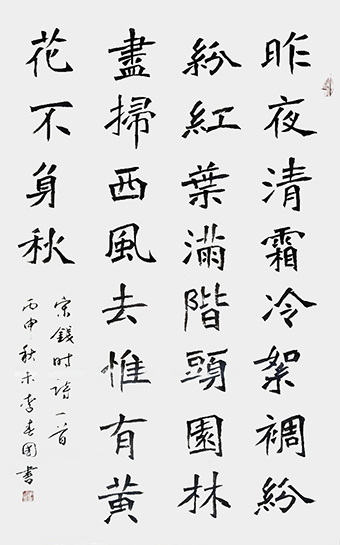 昨夜清霜冷絮裯紛
紛紅葉滿階頭園林
盡掃西風去惟有黄
花不身秋
宋錢时詩一首
丙申秋末李春国書